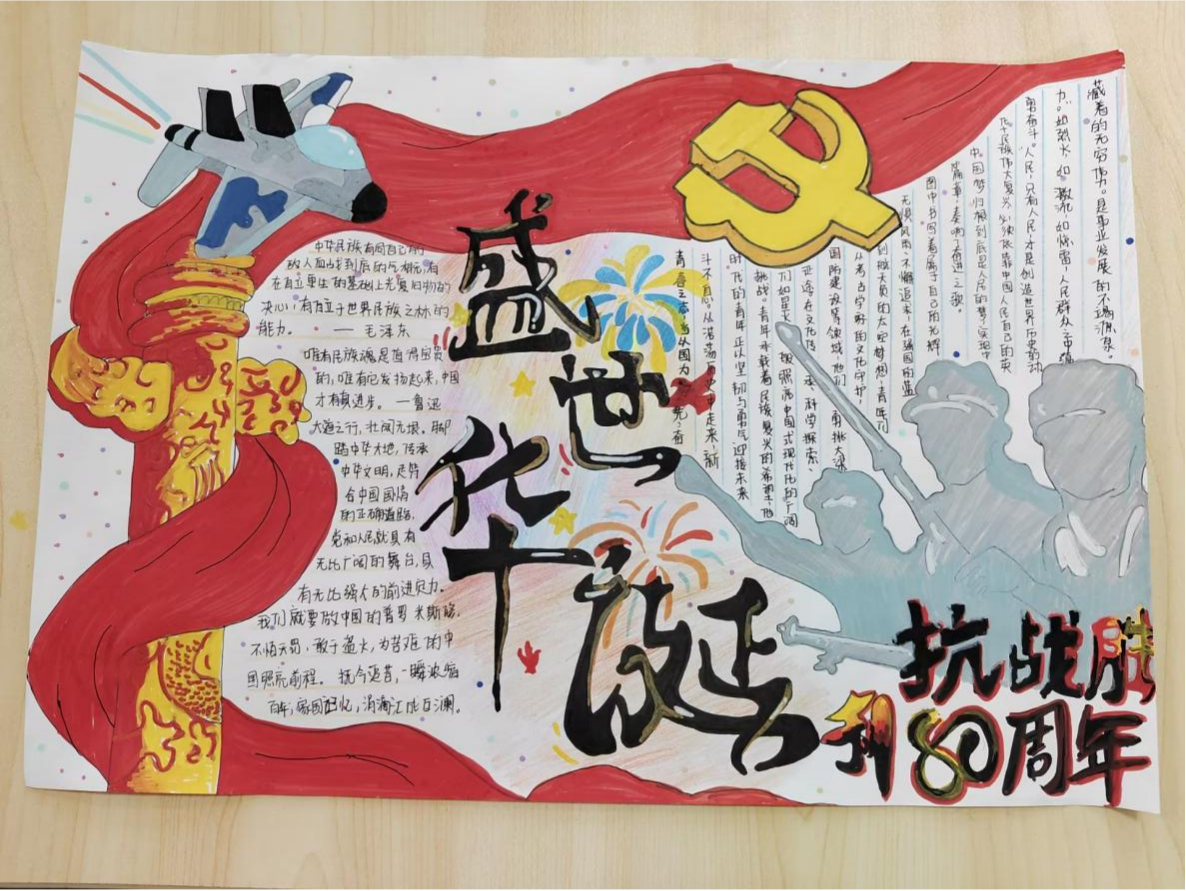 盛世
华诞
中华民族有同自己的
敌人血战到底的气概,有
在自立更生的基础上光复旧物的
决心,有自立于世界民族之林的
能力。 — 毛泽东
唯有民族魂是值得宝贵
的,唯有它发扬起来,中国
才有真进步。 —鲁迅
大道之行,壮阔无垠,脚
踏中华大地,传承
中华文明,走符
合中国国情
的正确道路,
党和人民就具有
无比广阔的舞台,具
有无比强大的前进定力。
我们就要做中国的普罗米斯修,
不怕天罚,敢于盗火,为苦难的中
国照亮前程。抚今追昔,一瞬波澜
百年,家国记忆,涓滴汇成巨澜。
藏着的无穷伟力。是事业发展的不竭源泉。
力。如烈火,如激流,如惊雷,人民群众中蕴
勇奋斗。人民,只有人民才是创造世界历史的动
化,民族伟大复兴必须依靠中国人民自己的英
中。中国梦归根到底是人民的梦,实现中
篇章,奏响了奋进之歌。
图中书写着属于自己的光辉
无惧风雨、不懈追求,在强国的蓝
青年们
从考古学界的文化守护,
国防建设等领域,他们 勇挑大梁
征途,在文化传承、科学探索、
们如星火 照亮高中国式现代化的广阔
挑战。青年承载着民族复兴的希望,他
时代的青年正以坚韧与勇气迎接未来
斗不息。从浩荡历史中走来,新
青春之志,当以国为先,奋
抗战胜
利80周年